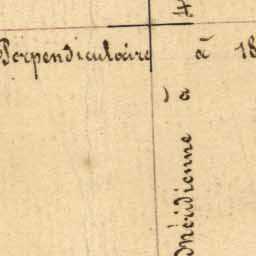 Perpendiculaire à 18
Méridienne à